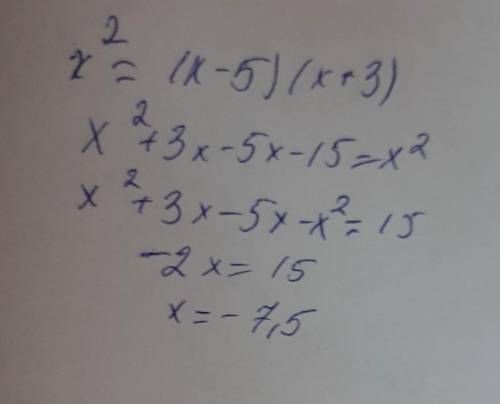 x² = (x-5)(x+3)
x²+3x-5x-15=x²
x²+3x-5x-x²=15
-2x=15
x=-7,5